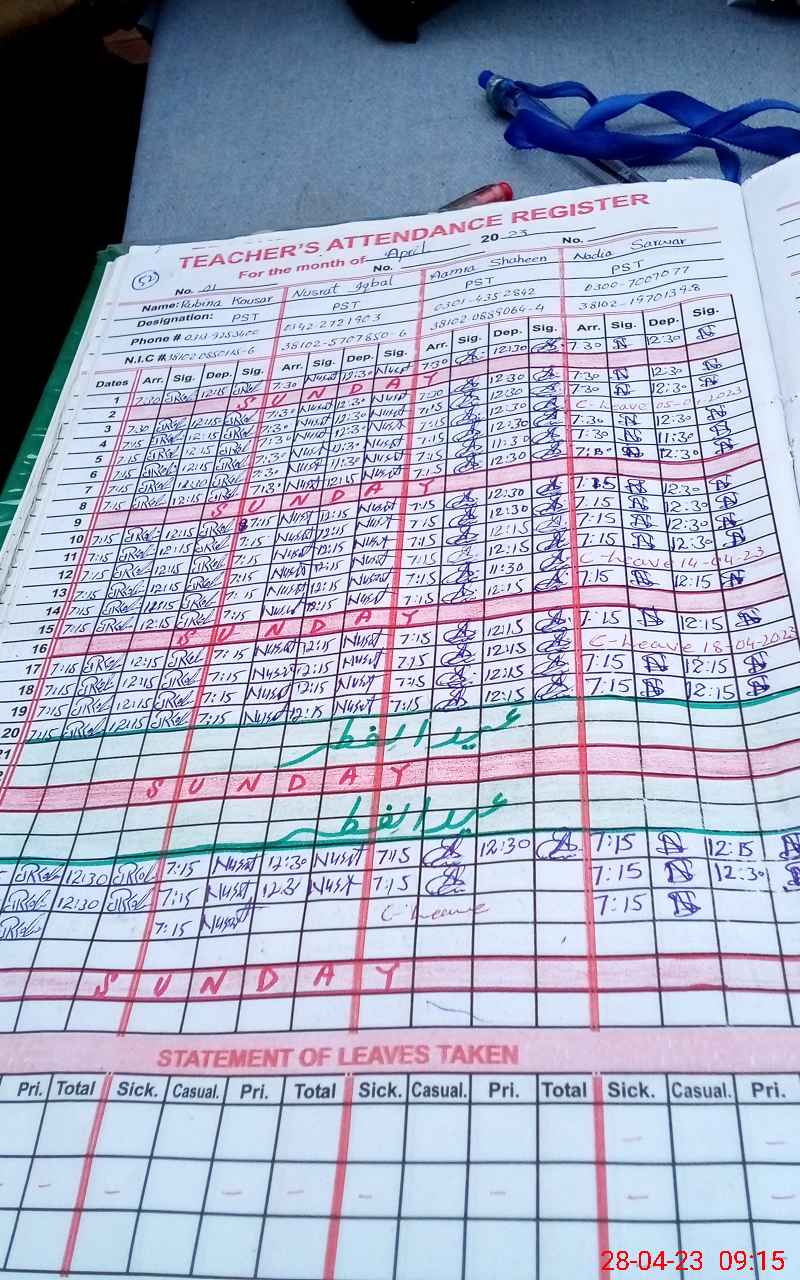 TEACHER'S ATTENDANCE REGISTER
For the month of April 2023
52
No. 01 No. No.
Name: Rubina Kousar Nusrat Iqbal Aamra Shaheen Nadia Sarwar
Designation: PST PST PST PST
Phone # 0342-2721903 0301-4352842 0300-7007077
N.I.C # 38102-5707850-6 38102-0889064-4
Dates Arr. Sig. Dep. Sig. Arr. Sig. Dep. Sig. Arr. Sig. Dep. Sig. Arr. Sig. Dep. Sig.
1 7:30 12:15 7:30 Nusrat 12:30 Nusrat 7:30 12:30 7:30 12:30
2 SUNDAY
3 7:30 12:15 7:30 Nusrat 12:30 Nusrat 7:30 12:30 7:30 12:30
4 7:15 12:15 7:30 Nusrat 12:30 Nusrat 7:15 12:30 7:30 12:30
5 7:15 12:15 7:30 Nusrat 12:30 Nusrat 7:15 12:30 C-Leave
6 7:15 12:15 7:30 Nusrat 7:15 12:30 7:30 12:30
7 7:15 12:15 7:30 Nusrat 11:30 Nusrat 7:15 11:30 7:30 11:30
8 7:15 12:15 Nusrat 12:15 Nusrat 7:15 12:30 12:30
9 SUNDAY
10 7:15 12:15 7:15 Nusrat 12:15 Nusrat 7:15 12:30 12:30
11 7:15 12:15 7:15 Nusrat 12:15 Nusrat 7:15 12:30 7:15 12:30
12 7:15 12:15 7:15 Nusrat 12:15 Nusrat 7:15 12:15 7:15 12:30
13 7:15 12:15 7:15 Nusrat 12:15 Nusrat 7:15 12:15 7:15 12:30
14 7:15 7:15 Nusrat Nusrat 7:15 11:30 C-Leave 14-04-23
15 7:15 12:15 7:15 Nusrat 12:15 Nusrat 7:15 12:15 7:15 12:15
16 SUNDAY
17 7:15 12:15 7:15 Nusrat 12:15 Nusrat 7:15 12:15 7:15 12:15
18 7:15 12:15 7:15 Nusrat 12:15 Nusrat 7:15 12:15 C-Leave 18-04-2023
19 7:15 12:15 7:15 Nusrat 12:15 Nusrat 7:15 12:15 7:15 12:15
20 7:15 12:15 7:15 Nusrat 12:15 Nusrat 7:15 12:15 7:15 12:15
21 عيد الفطر
SUNDAY
عيد الفطر
12:30 7:15 Nusrat 12:30 Nusrat 7:15 12:30 7:15 12:15
12:30 7:15 Nusrat Nusrat 7:15 7:15 12:30
7:15 Nusrat C-Leave 7:15
SUNDAY
STATEMENT OF LEAVES TAKEN
Pri. Total Sick. Casual. Pri. Total Sick. Casual. Pri. Total Sick. Casual. Pri.
28-04-23 09:15